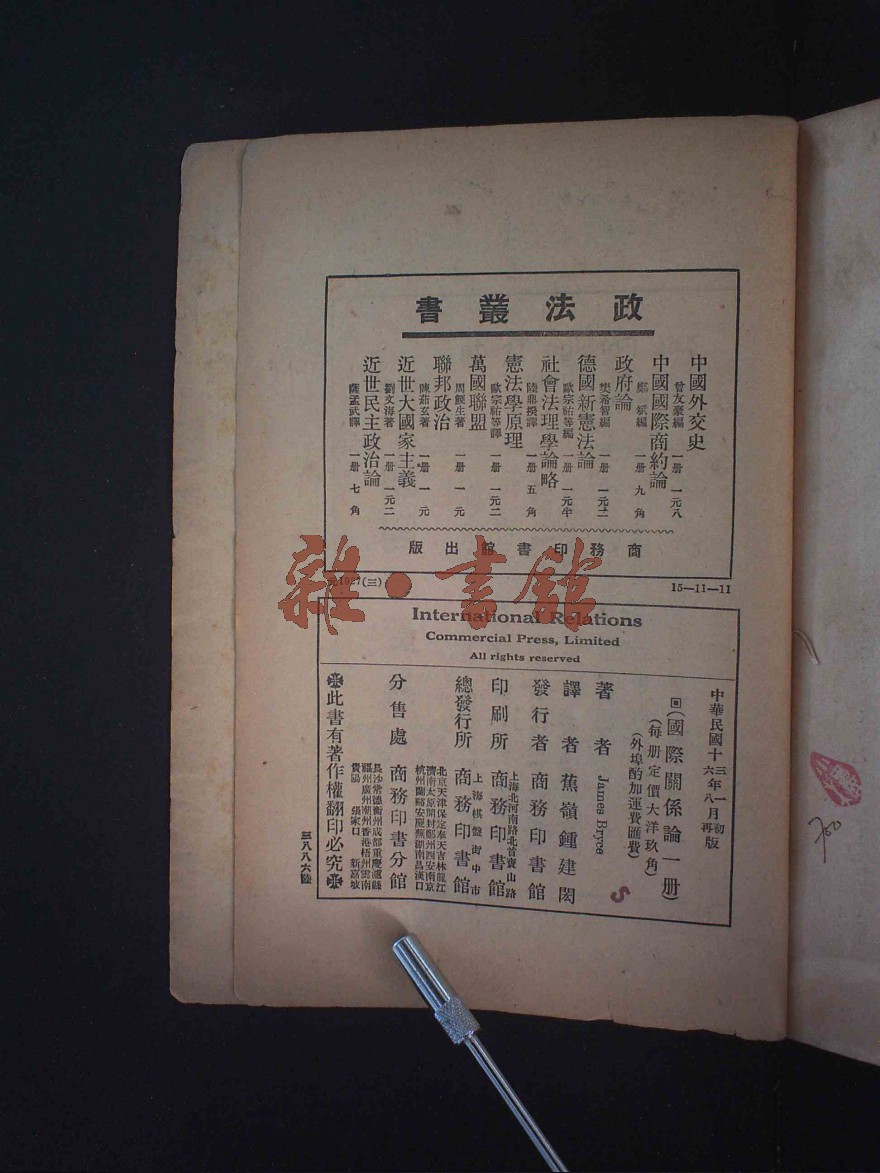 政法叢書
中國外交史 曾友豪編 一册 一元八
中國國際商約論 鄭斌編 一册 九角
政府論 樊希智編 一册 一元二
德國新憲法論 歐宗祐等編 一册 一元半
社會法理學論略 陸鼎揆譯 一册 五角
憲法學原理 歐宗祐等譯 一册 一元二
萬國聯盟 周鯁生著 一册 一元
聯邦政治 陳茹玄著 一册 一元
近世大國家主義 劉文海著 一册 一元二
近世民主政治論 薩孟武譯 一册 七角
商務印書館出版
元1927(三)
15—11—11
雜·書館
International Relations
Commercial Press, Limited
All rights reserved
中華民國十三年一月初版
六年八月再版
(國際關係論一册)
(每册定價大洋玖角)
(外埠酌加運費匯費)
著者 James Bryce
譯者 蕉嶺鍾建閎
發行者 商務印書館
印刷所 上海北河南路北首寶山路 商務印書館
總發行所 上海棋盤街中市 商務印書館
分售處 商務印書分館
北京天津保定奉天吉林龍江
濟南太原開封鄭州西安南京
杭州蘭谿安慶蕪湖南昌漢口
長沙常德衡州成都重慶瀘縣
福州廣州潮州香港梧州雲南
貴陽 張家口 新嘉坡
此書有著作權翻印必究
三八八六陸
700